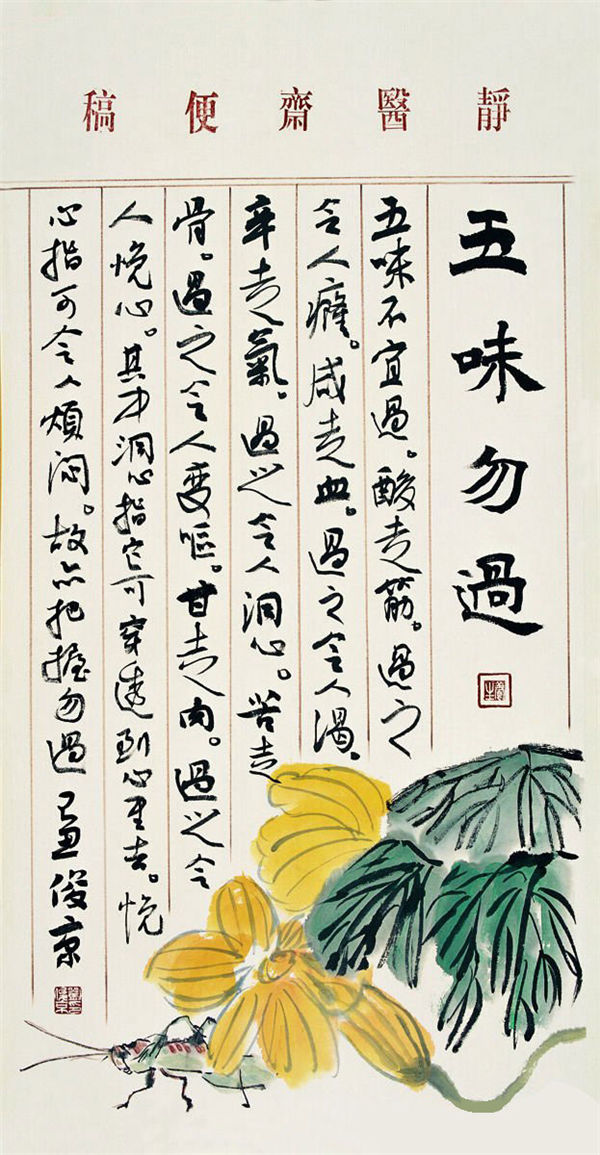 靜醫齋便稿
五味勿過
五味不宜過。酸走筋。過之
令人癃。咸走血。過之令人渴。
辛走氣。過之令人洞心。苦走
骨。過之令人变呕。甘走肉。過之令
人悅心。其中洞心指它可穿透到心里去。悅
心指可令人煩闷。故亦把握勿過 己丑 俊京